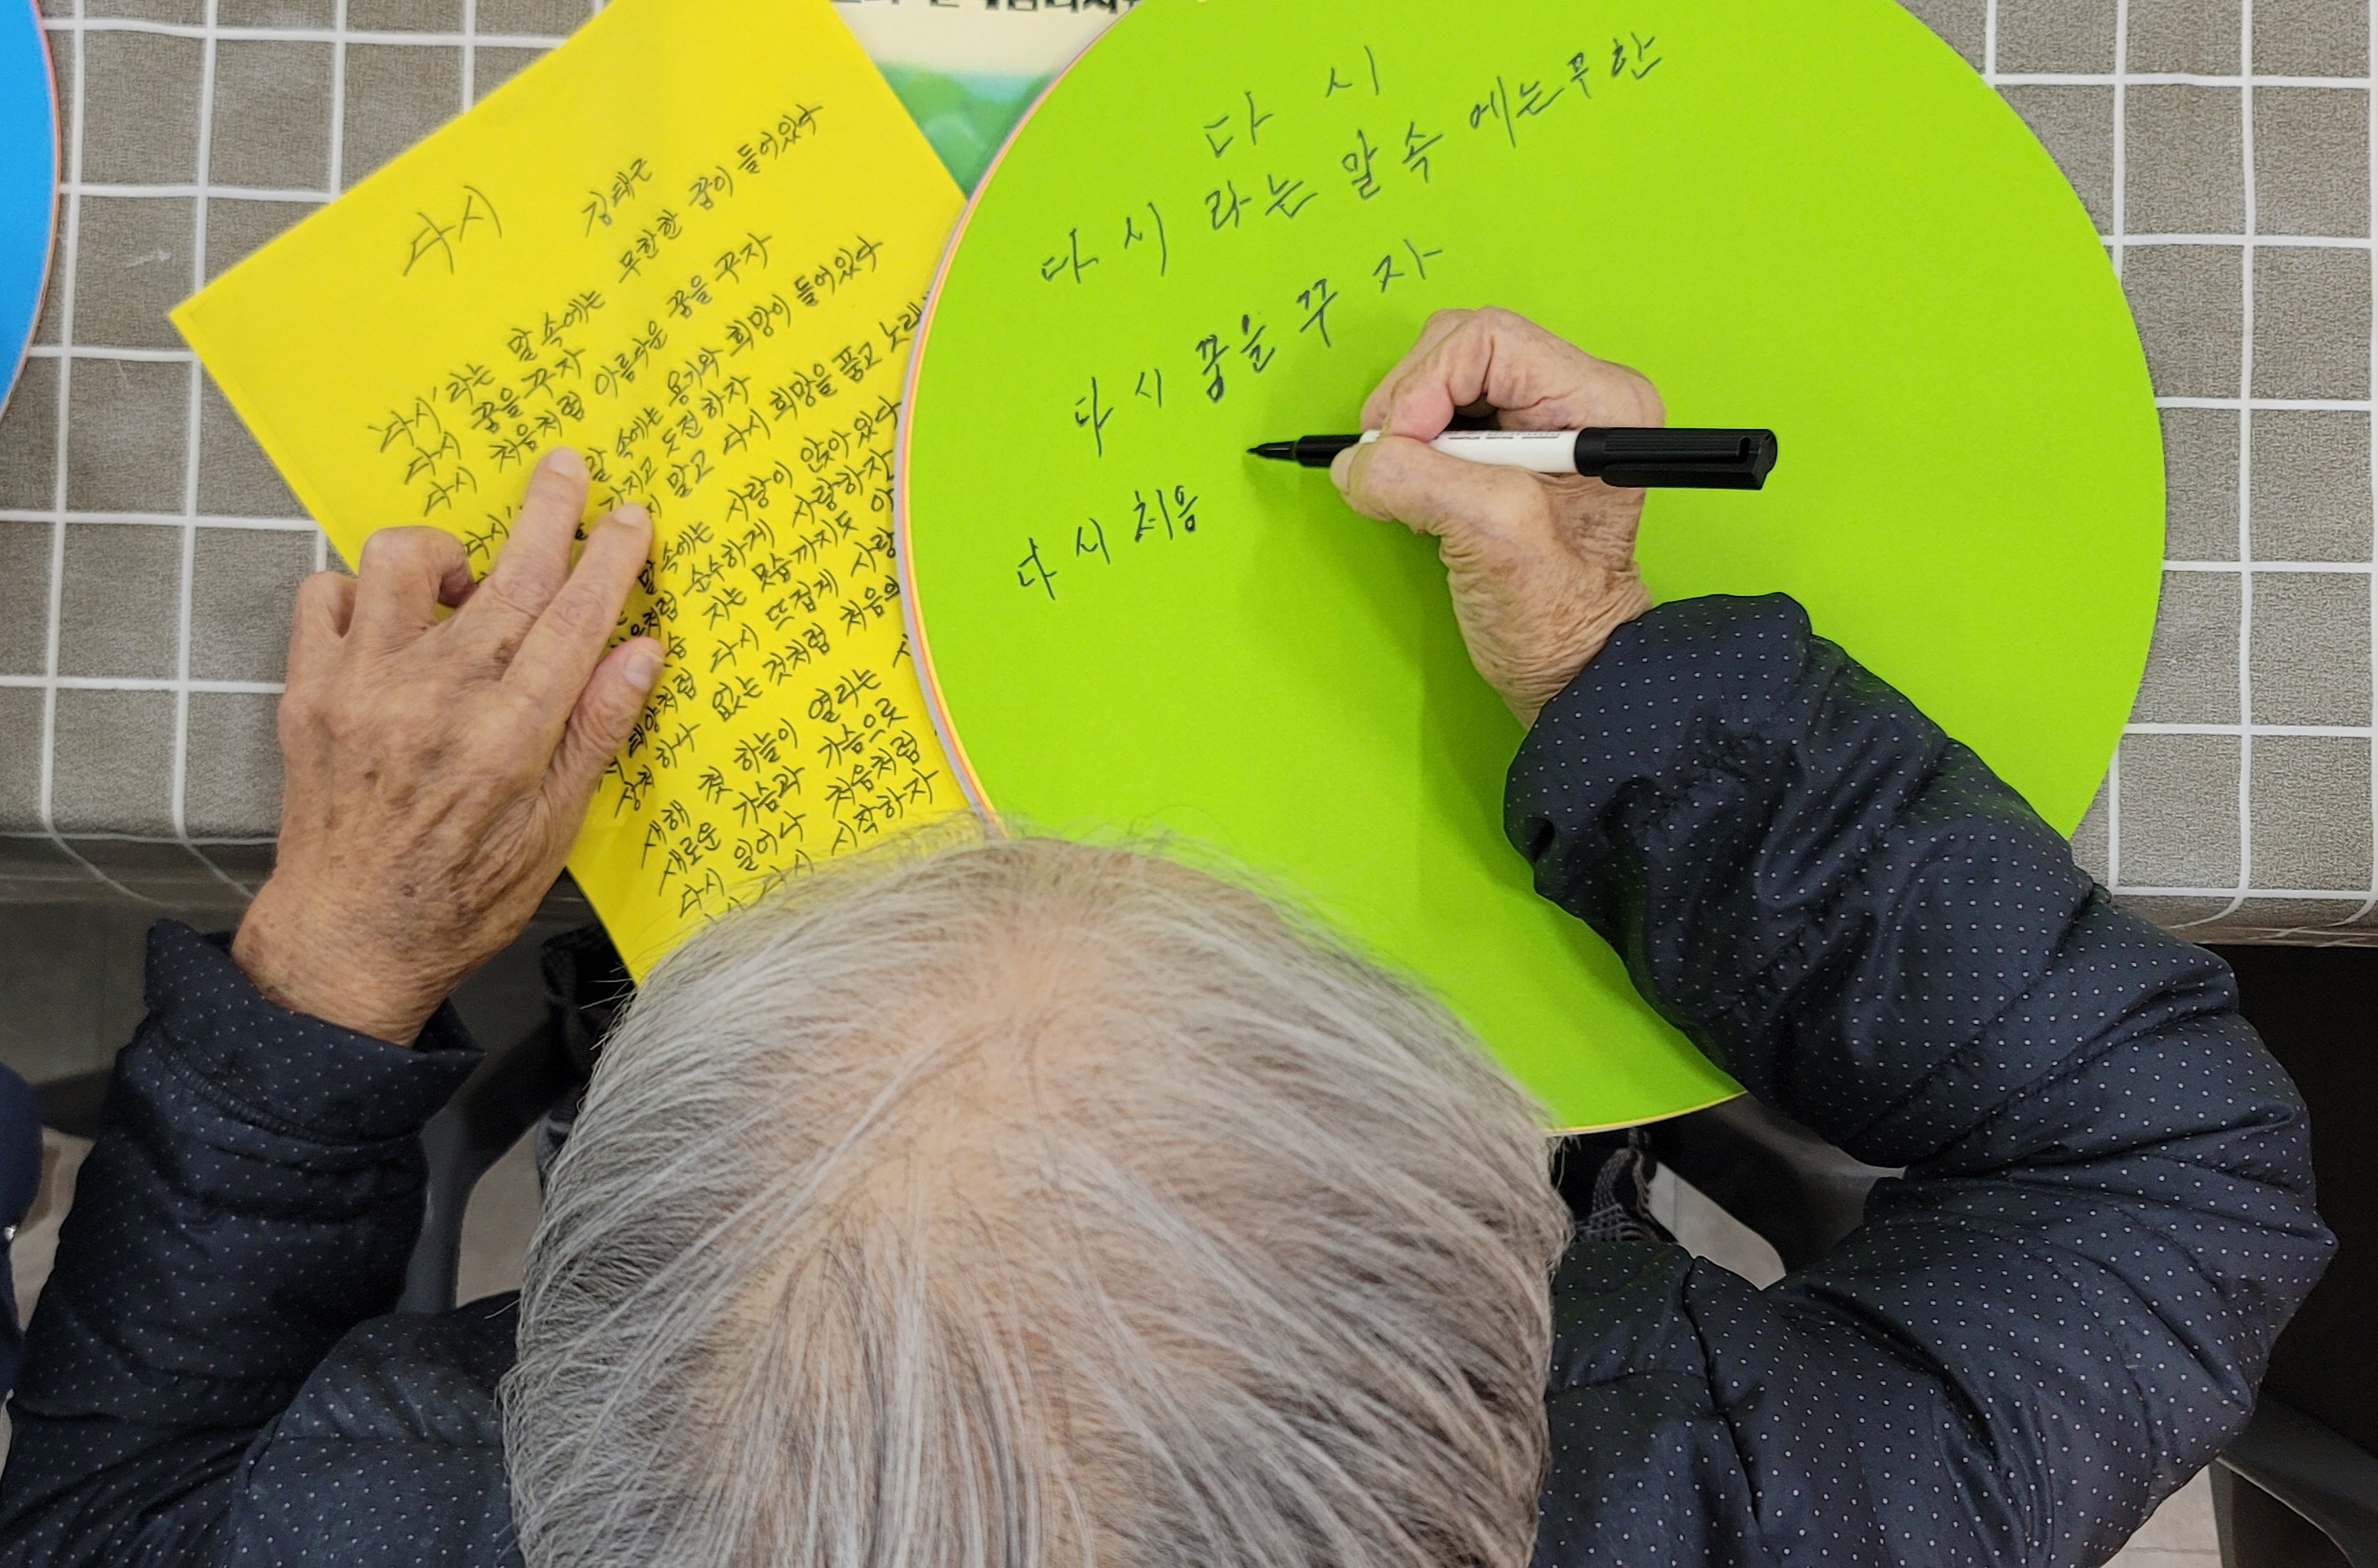 다시
김태근
'다시'라는 말 속에는 무한한 꿈이 들어있다
다시 꿈을 꾸자
다시 처음처럼 아름다운 꿈을 꾸자
다시' 말 속에는 용기와 희망이 들어있다
가지고 도전하자
말고 다시 희망을 품고 노래
말 속에는 사랑이 앉아있다
순수하게 사랑하자
지는 모습까지도
태양처럼 다시 뜨겁게 사랑
상처 하나 없는 것처럼 처음의
새해 첫 하늘이 열리는
새로운 가슴과 가슴으로
다시 일어나 처음처럼
다시 시작하자
다시
다시 라는 말 속 에는 무한
다시 꿈을 꾸자
다시 처음